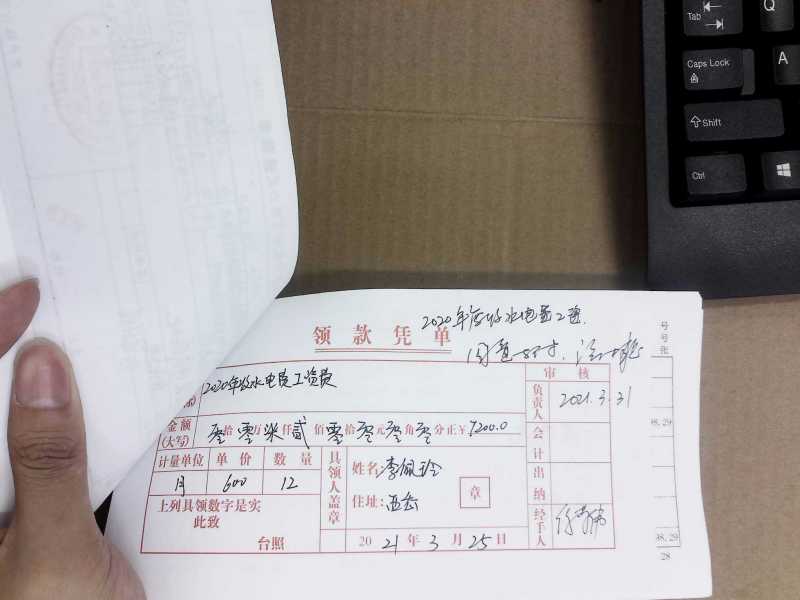 Tab
Q
Caps Lock
A
Shift
Ctrl
2020年度收水电费工资
领款凭单
同意
号
号
张
2020年收水电员工资费
审核
负责人
2021.3.31
金额
(大写)
零拾零万柒仟贰佰零拾零元零角零分正¥7200.0
38.29
会计
计量单位 单价 数量
月 600 12
具领人盖章
姓名:李佩玲
住址:西岳
章
出纳
上列具领数字是实
此致
台照
经手人
2021年3月25日
38.29
28